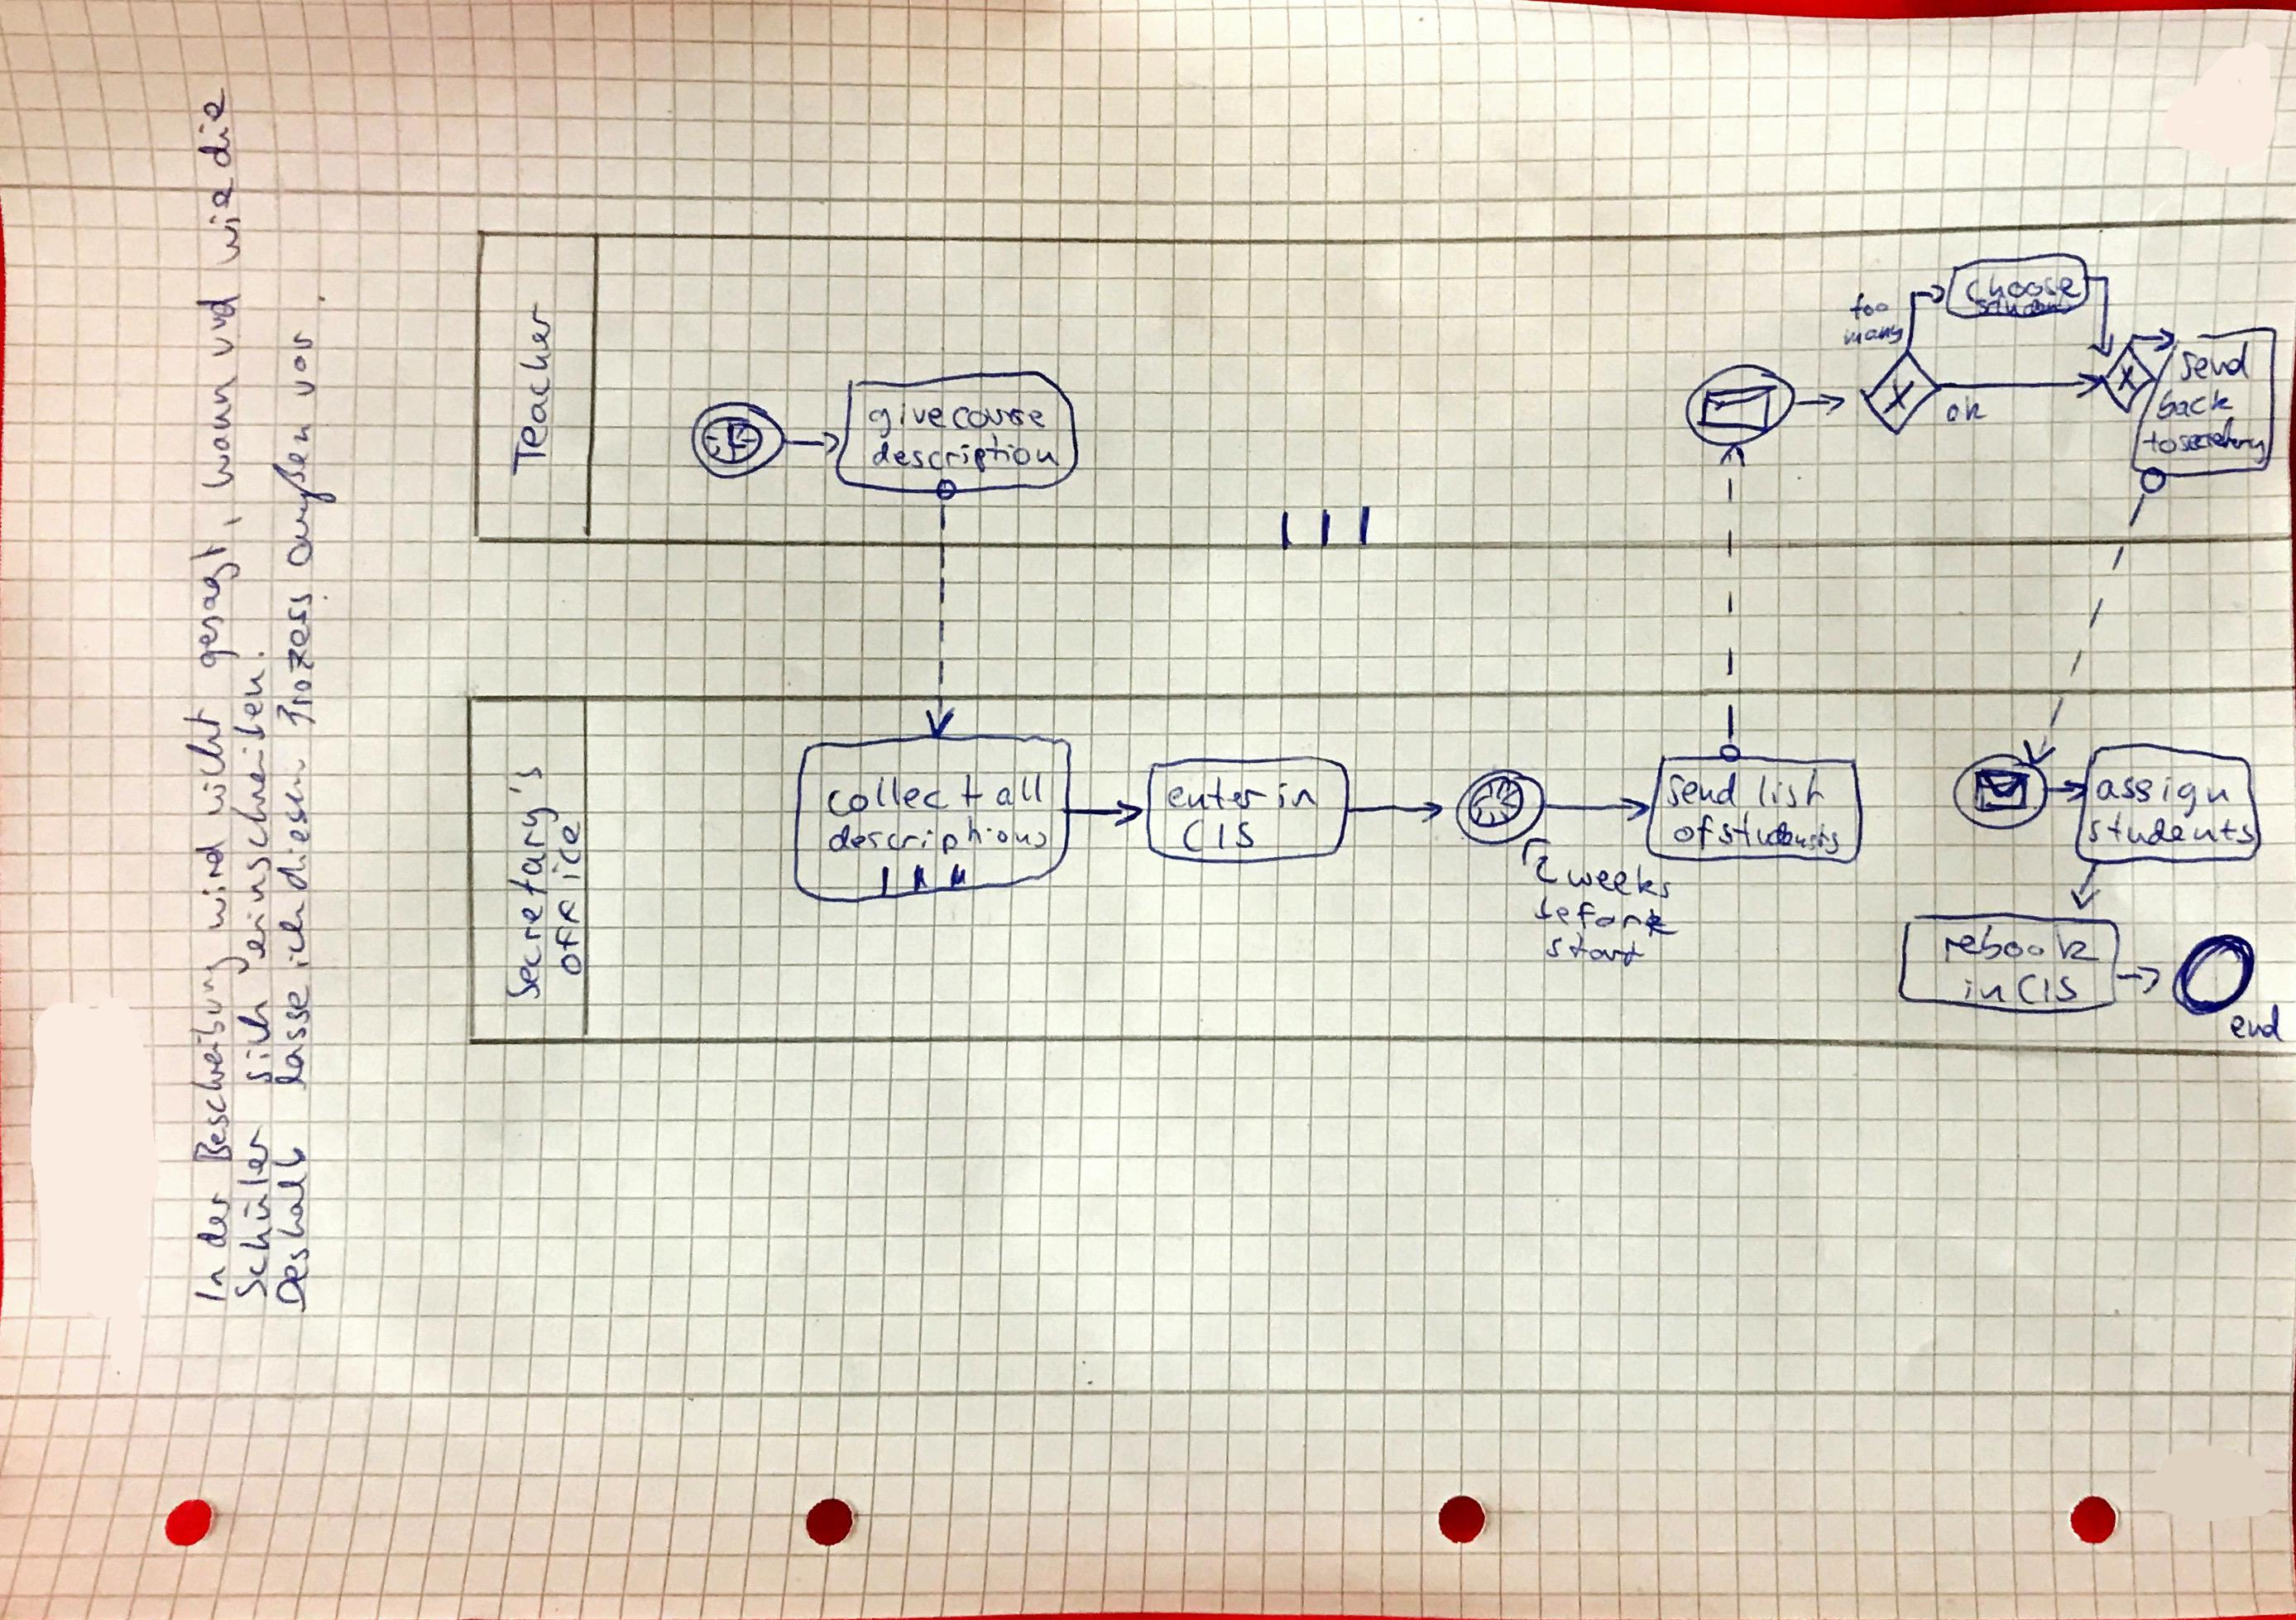 In der Beschreibung wird nicht gesagt, wann und wie die
Schüler sich einschreiben.
Deshalb lasse ich diesen Prozess außen vor.
Teacher
give course
description
too
many
choose
ok
send
back
to secretary
Secretary's
office
collect all
descriptions
enter in
CIS
2 weeks
before
start
send list
of students
assign
students
rebook
in CIS
end